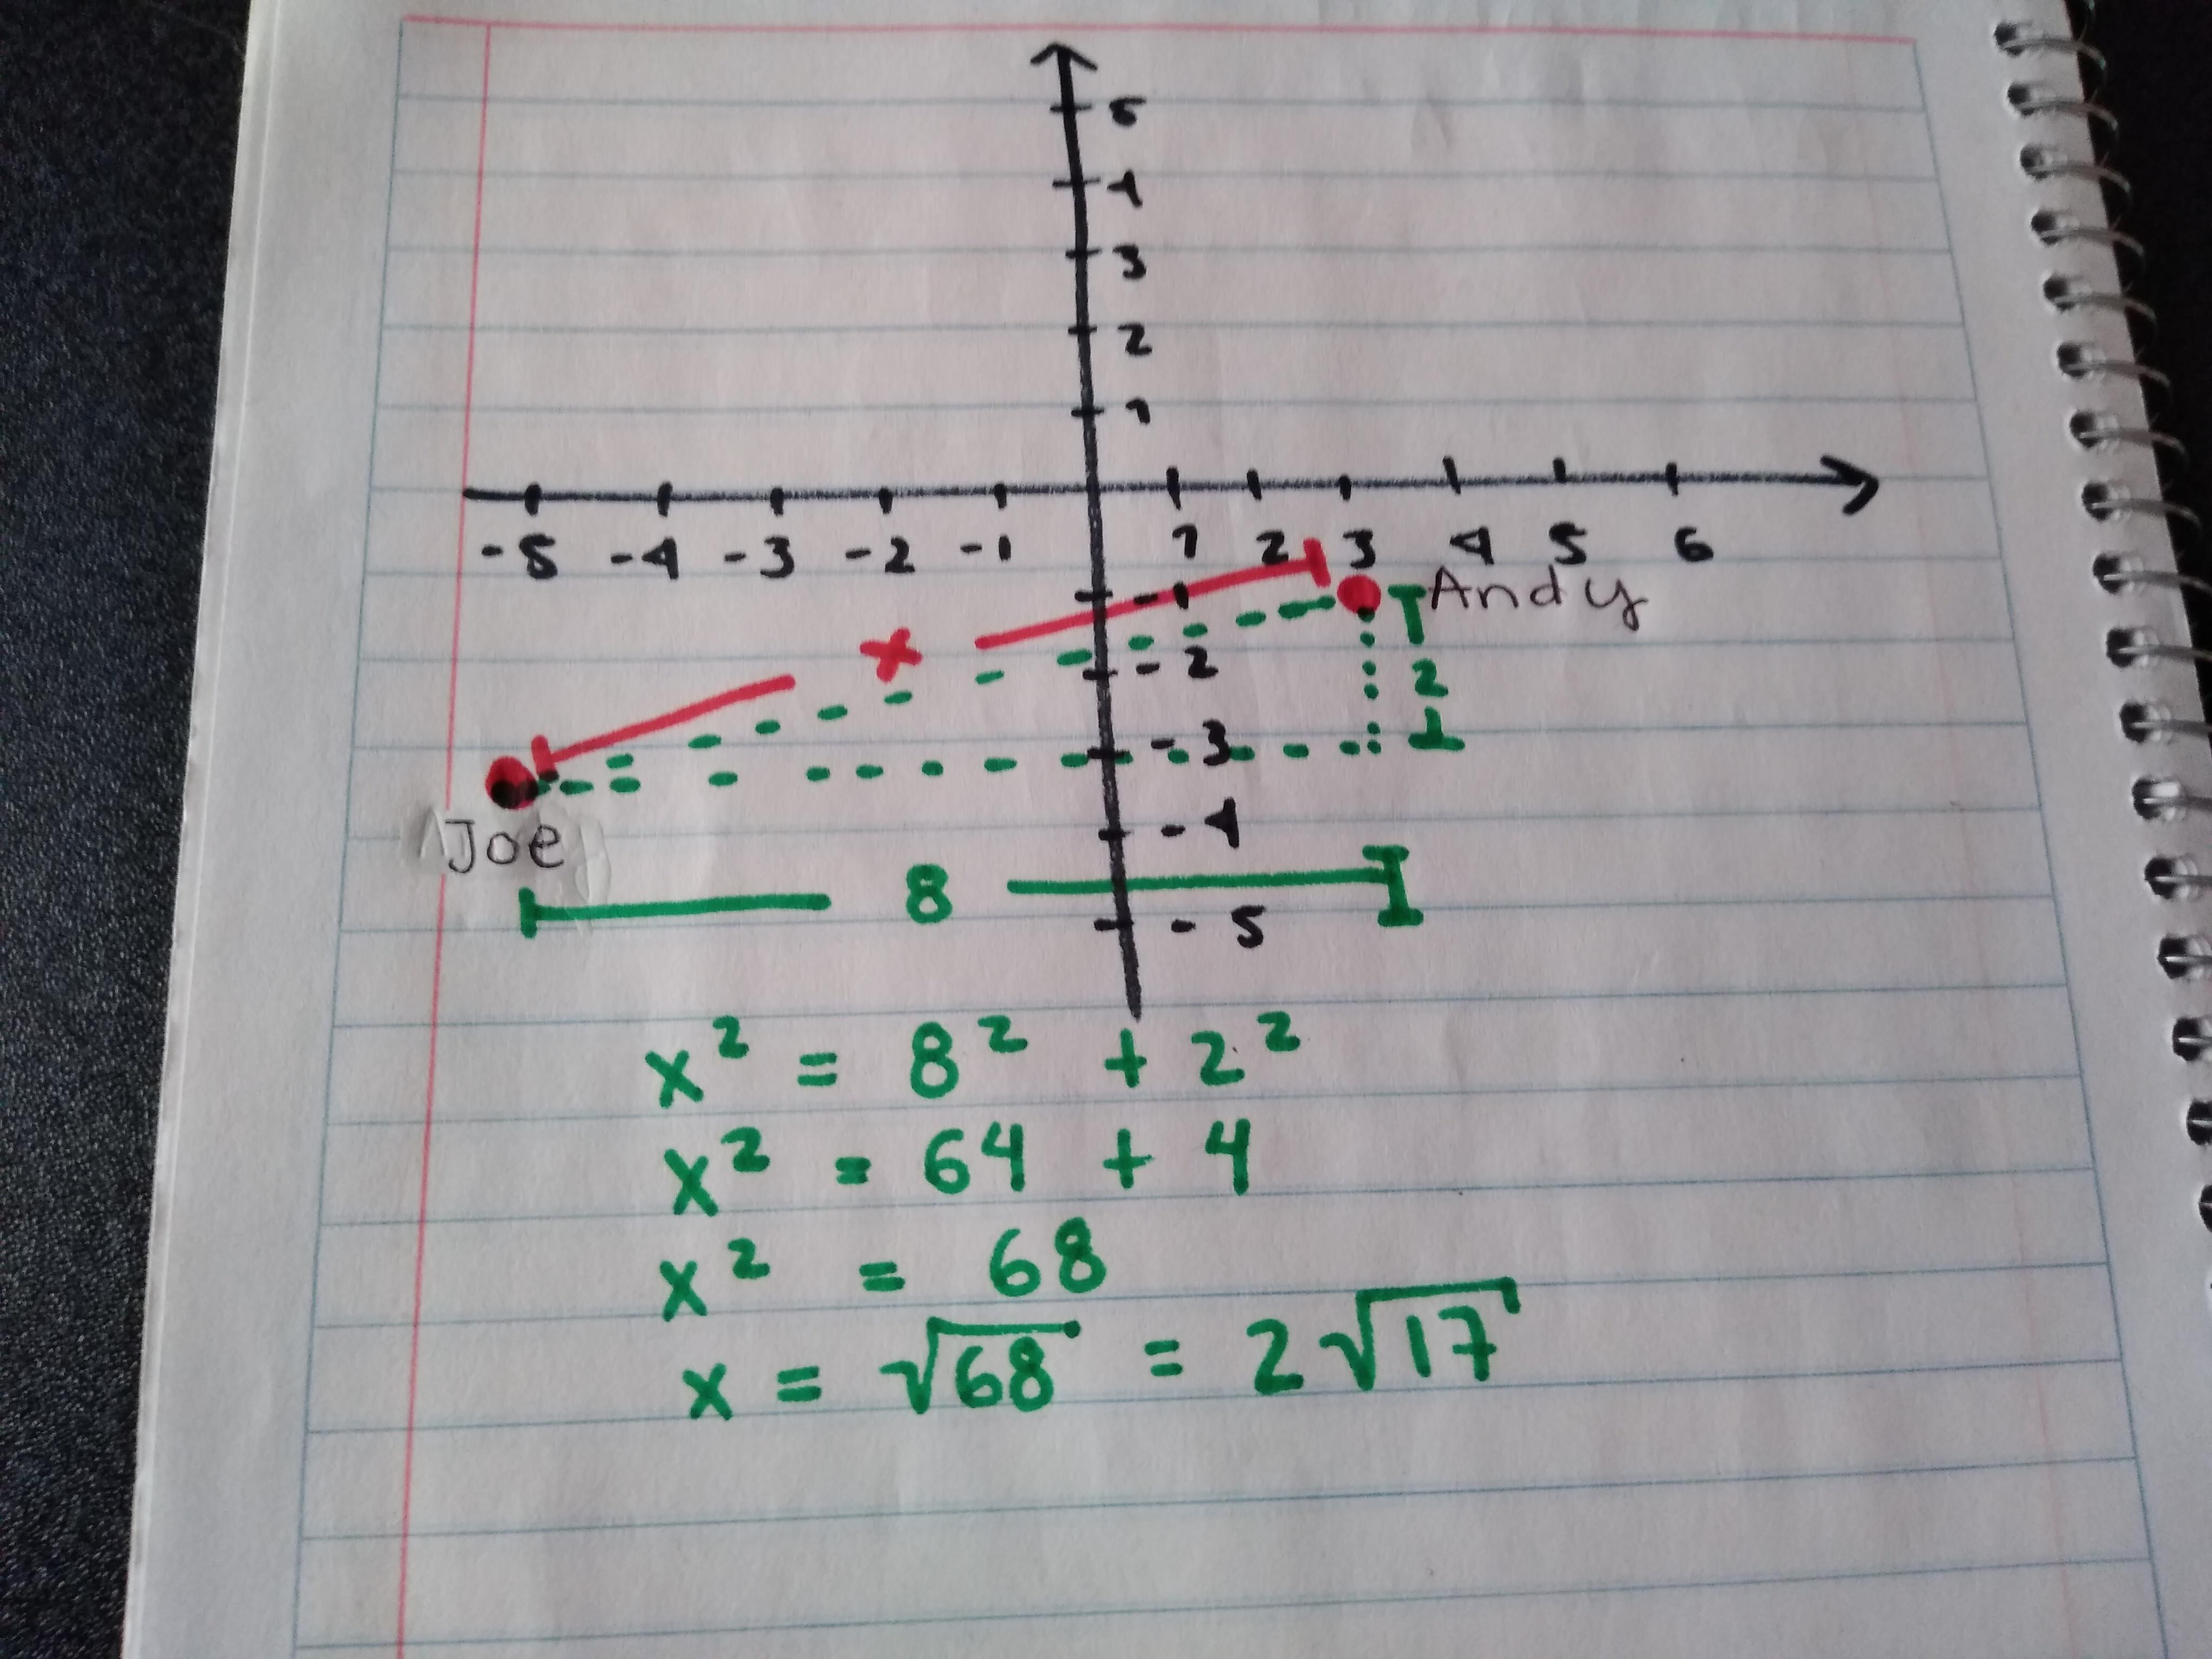 5
4
3
2
1
-5 -4 -3 -2 -1 1 2 3 4 5 6
-1 Andy
x
-2 2
-3
Joe
-4
8
-5
x² = 8² + 2²
x² = 64 + 4
x² = 68
x = √68 = 2√17